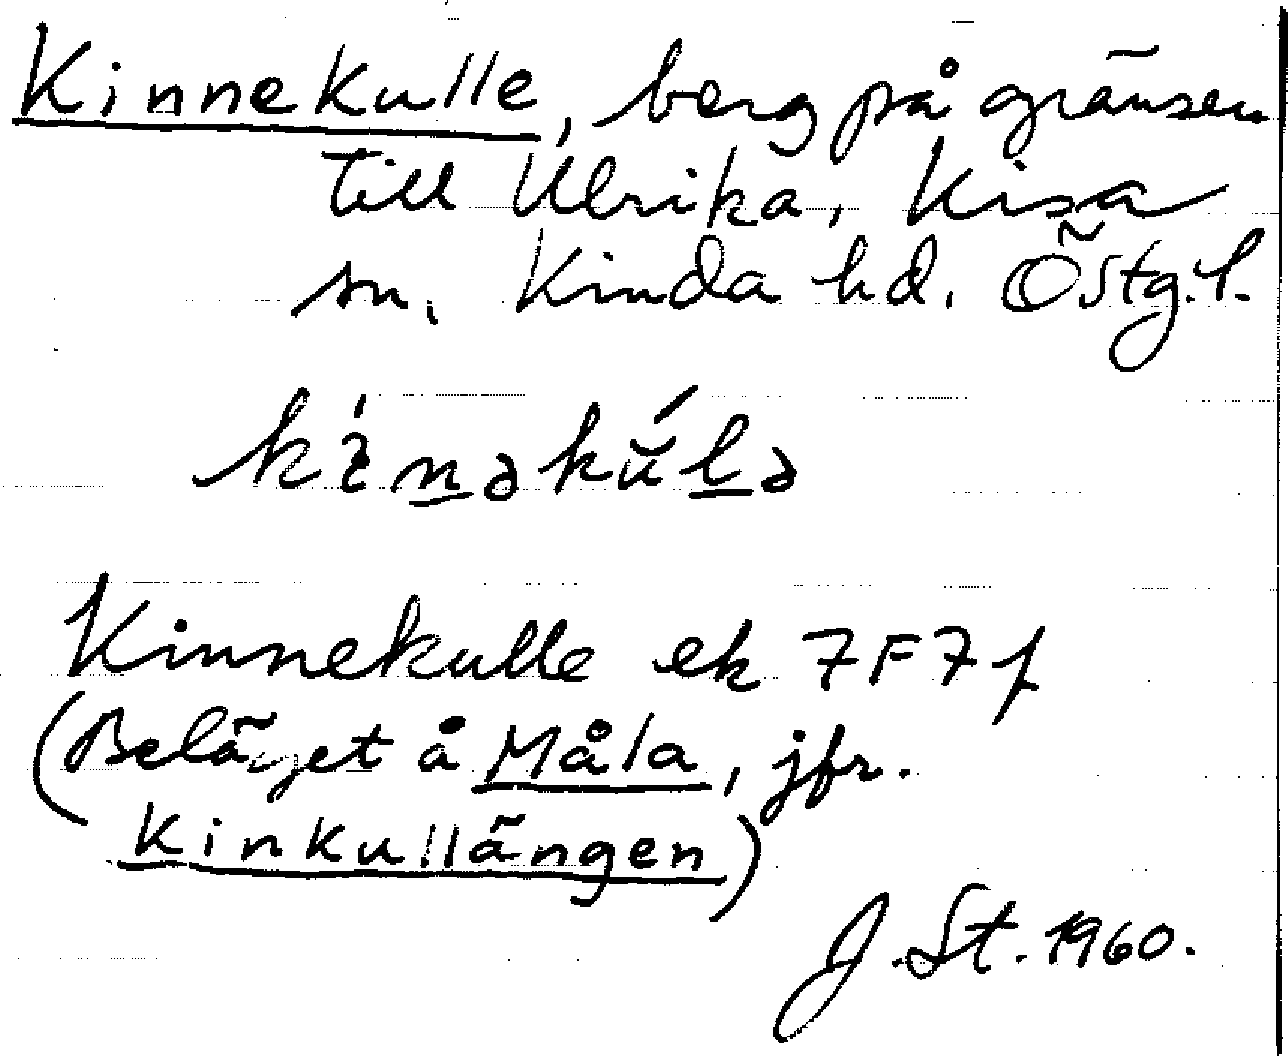 Kinnekulle, berg på gränsen
till Ulrika, Kisa
sn. Kinda hd. Östg.l.
kìnəkúlə
Kinnekulle ek 7F7f
(Beläget å Måla, jfr.
Kinkullängen)
J. St. 1960.